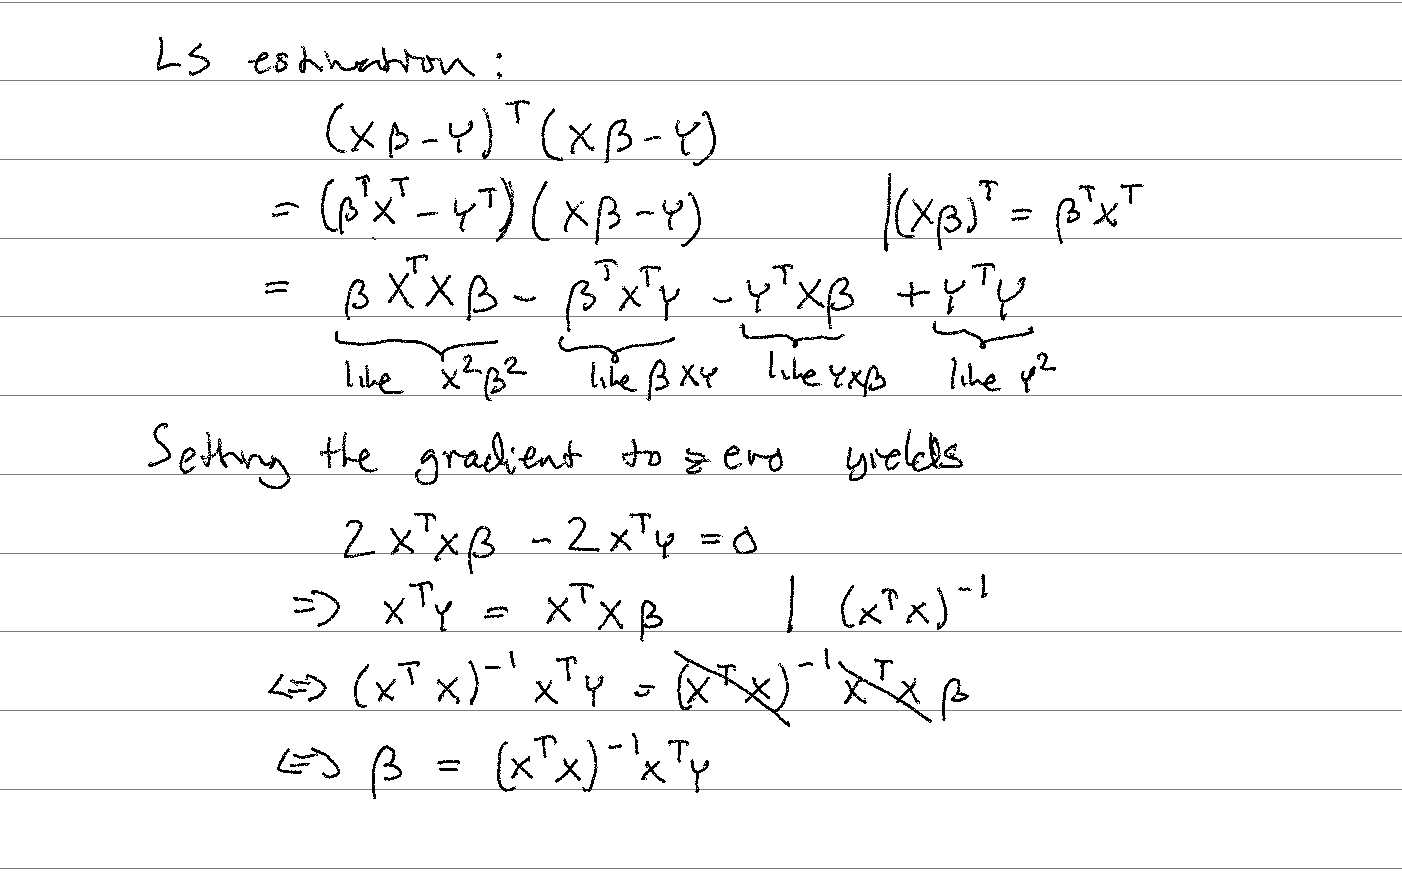 LS estimation:
(Xβ-Y)ᵀ(Xβ-Y)
= (βᵀXᵀ-Yᵀ)(Xβ-Y) |(Xβ)ᵀ = βᵀXᵀ
= βXᵀXβ - βᵀXᵀY - YᵀXβ + YᵀY
like x²β² like βXY like YXβ like Y²
Setting the gradient to zero yields
2XᵀXβ - 2XᵀY = 0
⇒ XᵀY = XᵀXβ | (XᵀX)⁻¹
⇔ (XᵀX)⁻¹XᵀY = (XᵀX)⁻¹XᵀXβ
⇔ β = (XᵀX)⁻¹XᵀY